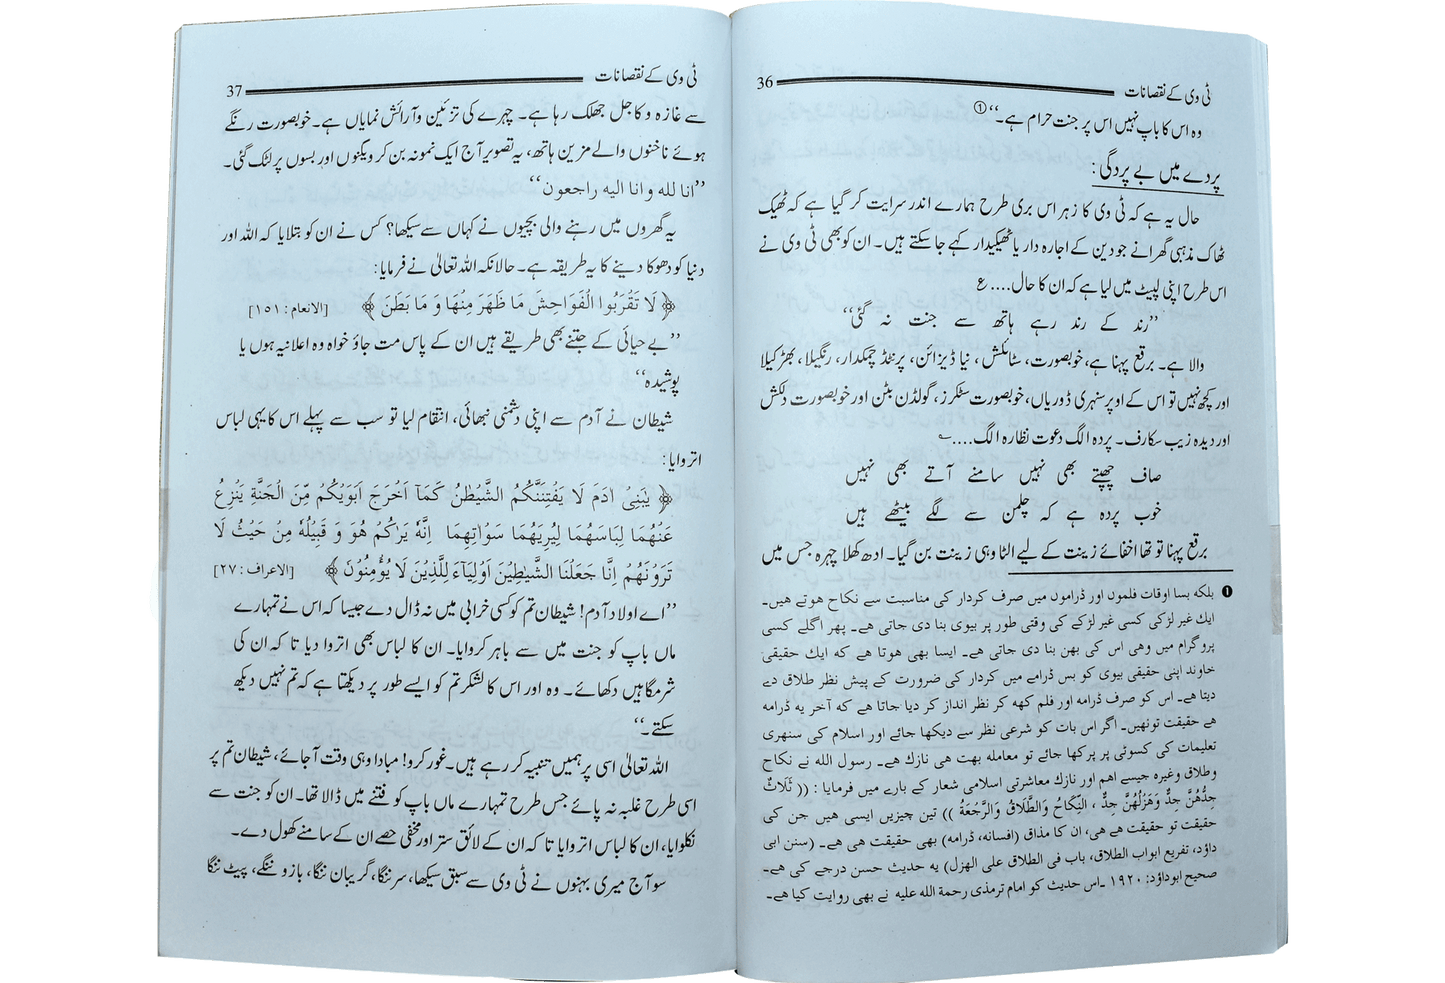 ٹی وی کے نقصانات 36
وہ اس کا باپ نہیں اس پر جنت حرام ہے۔‘‘ ①
پردے میں بے پردگی:
حال یہ ہے کہ ٹی وی کا زہر اس بری طرح ہمارے اندر سرایت کر گیا ہے کہ ٹھیک
ٹھاک مذہبی گھرانے جو دین کے اجارہ دار یا ٹھیکیدار کہے جا سکتے ہیں۔ ان کو بھی ٹی وی نے
اس طرح اپنی لپیٹ میں لیا ہے کہ ان کا حال.... ع
’’رند کے رند رہے ہاتھ سے جنت نہ گئی‘‘
والا ہے۔ برقع پہنا ہے، خوبصورت، سٹائلش، نیا ڈیزائن، پرنٹڈ چمکدار، رنگیلا، بھڑکیلا
اور کچھ نہیں تو اس کے اوپر سنہری ڈوریاں، خوبصورت سٹکرز، گولڈن بٹن اور خوبصورت دلکش
اور دیدہ زیب سکارف۔ پردہ الگ دعوت نظارہ الگ.... ؎
صاف چھپتے بھی نہیں سامنے آتے بھی نہیں
خوب پردہ ہے کہ چلمن سے لگے بیٹھے ہیں
برقع پہنا تو تھا اخفائے زینت کے لیے الٹا وہی زینت بن گیا۔ ادھ کھلا چہرہ جس میں
❶ بلکہ بسا اوقات فلموں اور ڈراموں میں صرف کردار کی مناسبت سے نکاح ہوتے ہیں۔
ایک غیر لڑکی کسی غیر لڑکے کی وقتی طور پر بیوی بنا دی جاتی ہے۔ پھر اگلے کسی
پروگرام میں وہی اس کی بہن بنا دی جاتی ہے۔ ایسا بھی ہوتا ہے کہ ایک حقیقی
خاوند اپنی حقیقی بیوی کو بس ڈرامے میں کردار کی ضرورت کے پیش نظر طلاق دے
دیتا ہے۔ اس کو صرف ڈرامہ اور فلم کہہ کر نظر انداز کر دیا جاتا ہے کہ آخر یہ ڈرامہ
ہے حقیقت تو نہیں۔ اگر اس بات کو شرعی نظر سے دیکھا جائے اور اسلام کی سنہری
تعلیمات کی کسوٹی پر پرکھا جائے تو معاملہ بہت ہی نازک ہے۔ رسول اللہ نے نکاح
وطلاق وغیرہ جیسے اہم اور نازک معاشرتی اسلامی شعار کے بارے میں فرمایا : (( ثَلَاثٌ
جِدُّهُنَّ جِدٌّ وَهَزْلُهُنَّ جِدٌّ ، النِّكَاحُ وَالطَّلَاقُ وَالرَّجْعَةُ )) تین چیزیں ایسی ہیں جن کی
حقیقت تو حقیقت ہے ہی، ان کا مذاق (افسانہ، ڈرامہ) بھی حقیقت ہی ہے۔ (سنن ابی
داؤد، تفریع ابواب الطلاق، باب فی الطلاق علی الهزل) یہ حدیث حسن درجے کی ہے۔
صحیح ابوداؤد: ١٩٢٠ ۔اس حدیث کو امام ترمذی رحمة الله عليه نے بھی روایت کیا ہے۔
ٹی وی کے نقصانات 37
سے غازہ و کاجل جھلک رہا ہے۔ چہرے کی تزئین و آرائش نمایاں ہے۔ خوبصورت رنگے
ہوئے ناخنوں والے مزین ہاتھ، یہ تصویر آج ایک نمونہ بن کر ویگنوں اور بسوں پر لٹک گئی۔
’’انا لله و انا اليه راجعون‘‘
یہ گھروں میں رہنے والی بچیوں نے کہاں سے سیکھا؟ کس نے ان کو بتلایا کہ اللہ اور
دنیا کو دھوکا دینے کا یہ طریقہ ہے۔ حالانکہ اللہ تعالیٰ نے فرمایا:
﴿ لَا تَقْرَبُوا الْفَوَاحِشَ مَا ظَهَرَ مِنْهَا وَ مَا بَطَنَ ﴾ [الانعام : ١٥١]
’’بے حیائی کے جتنے بھی طریقے ہیں ان کے پاس مت جاؤ خواہ وہ اعلانیہ ہوں یا
پوشیدہ‘‘
شیطان نے آدم سے اپنی دشمنی نبھائی، انتقام لیا تو سب سے پہلے اس کا یہی لباس
اتروایا:
﴿ يٰبَنِيْٓ اٰدَمَ لَا يَفْتِنَنَّكُمُ الشَّيْطٰنُ كَمَآ اَخْرَجَ اَبَوَيْكُمْ مِّنَ الْجَنَّةِ يَنْزِعُ
عَنْهُمَا لِبَاسَهُمَا لِيُرِيَهُمَا سَوْاٰتِهِمَا اِنَّهٗ يَرٰكُمْ هُوَ وَ قَبِيْلُهٗ مِنْ حَيْثُ لَا
تَرَوْنَهُمْ اِنَّا جَعَلْنَا الشَّيٰطِيْنَ اَوْلِيَآءَ لِلَّذِيْنَ لَا يُؤْمِنُوْنَ ﴾ [الاعراف : ٢٧]
’’اے اولاد آدم! شیطان تم کو کسی خرابی میں نہ ڈال دے جیسا کہ اس نے تمہارے
ماں باپ کو جنت میں سے باہر کروایا۔ ان کا لباس بھی اتروا دیا تا کہ ان کی
شرمگاہیں دکھائے۔ وہ اور اس کا لشکر تم کو ایسے طور پر دیکھتا ہے کہ تم نہیں دیکھ
سکتے۔‘‘
اللہ تعالیٰ اسی پر ہمیں تنبیہ کر رہے ہیں۔ غور کرو! مبادا وہی وقت آ جائے، شیطان تم پر
اسی طرح غلبہ نہ پائے جس طرح تمہارے ماں باپ کو فتنے میں ڈالا تھا۔ ان کو جنت سے
نکلوایا، ان کا لباس اتروایا تا کہ ان کے لائق ستر اور مخفی حصے ان کے سامنے کھول دے۔
سو آج میری بہنوں نے ٹی وی سے سبق سیکھا، سر ننگا، گریبان ننگا، بازو ننگے، پیٹ ننگا